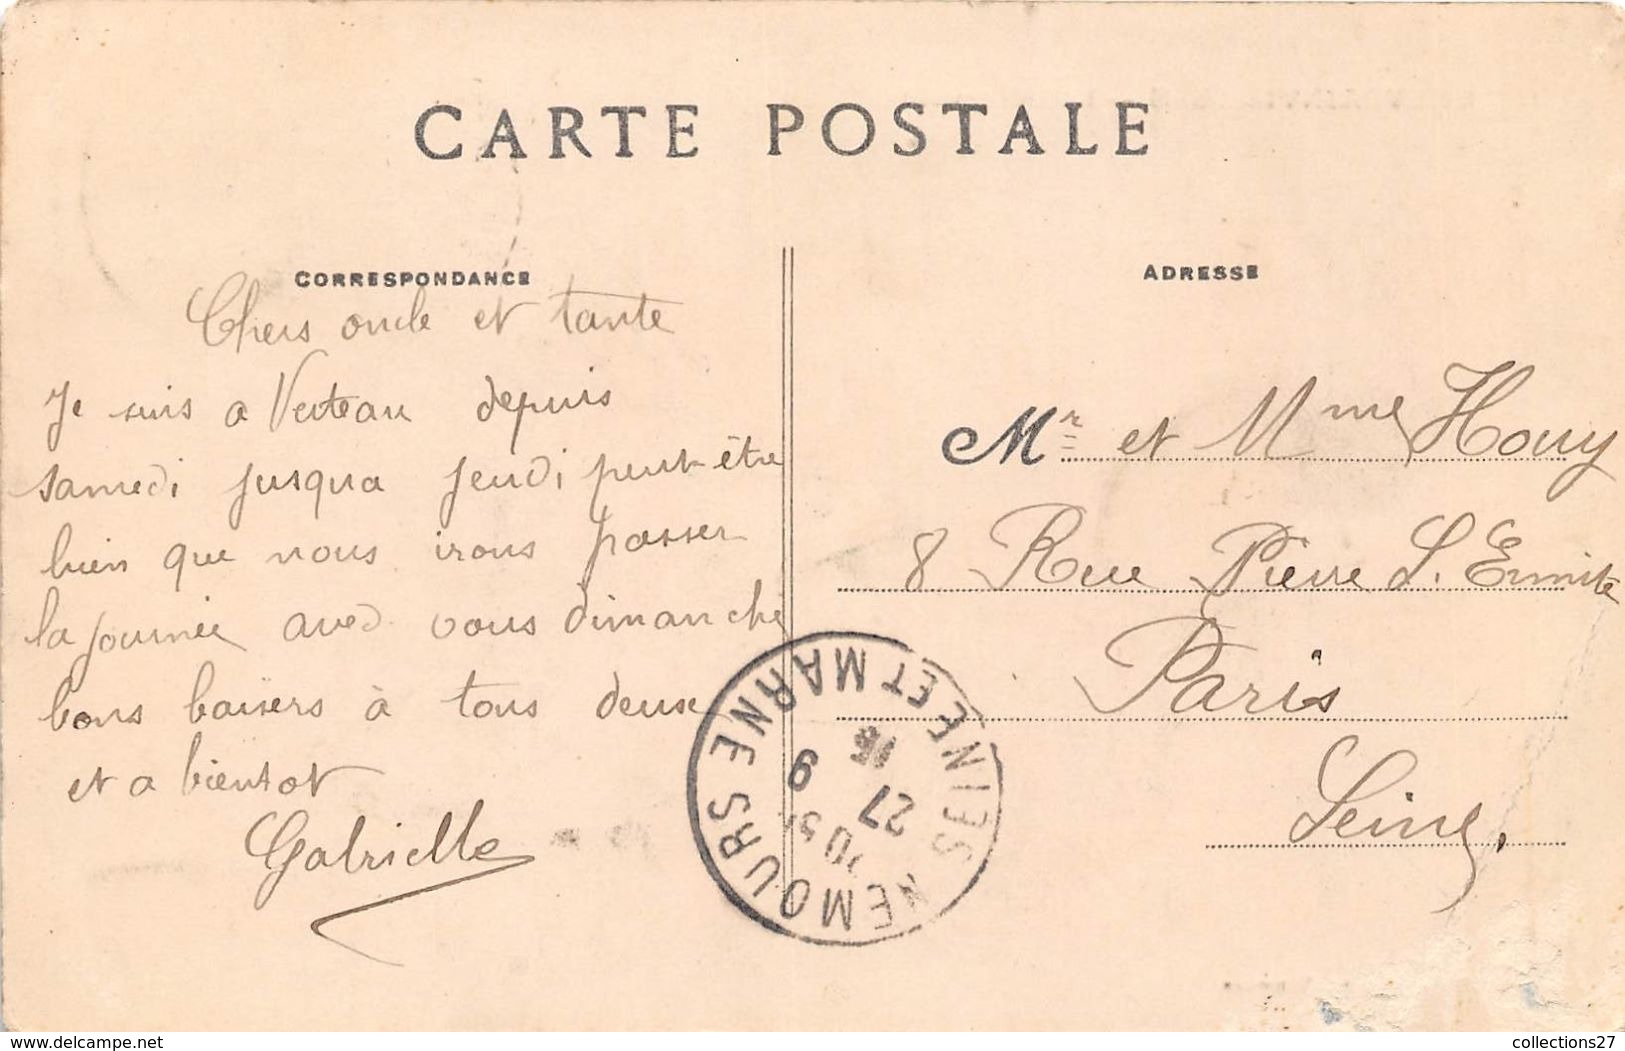 CARTE POSTALE
CORRESPONDANCE
Chers oncle et tante
Je suis a Verteau depuis
samedi jusqua jeudi peut-être
bien que nous irons passer
la journée avec vous dimanche
bons baisers à tous deux
et a bientot
Gabrielle
ADRESSE
Mr et Mme Houy
8 Rue Pierre L. Ermite
Paris
Seine
NEMOURS SEINE ET MARNE
27 9
16
www.delcampe.net
collections27